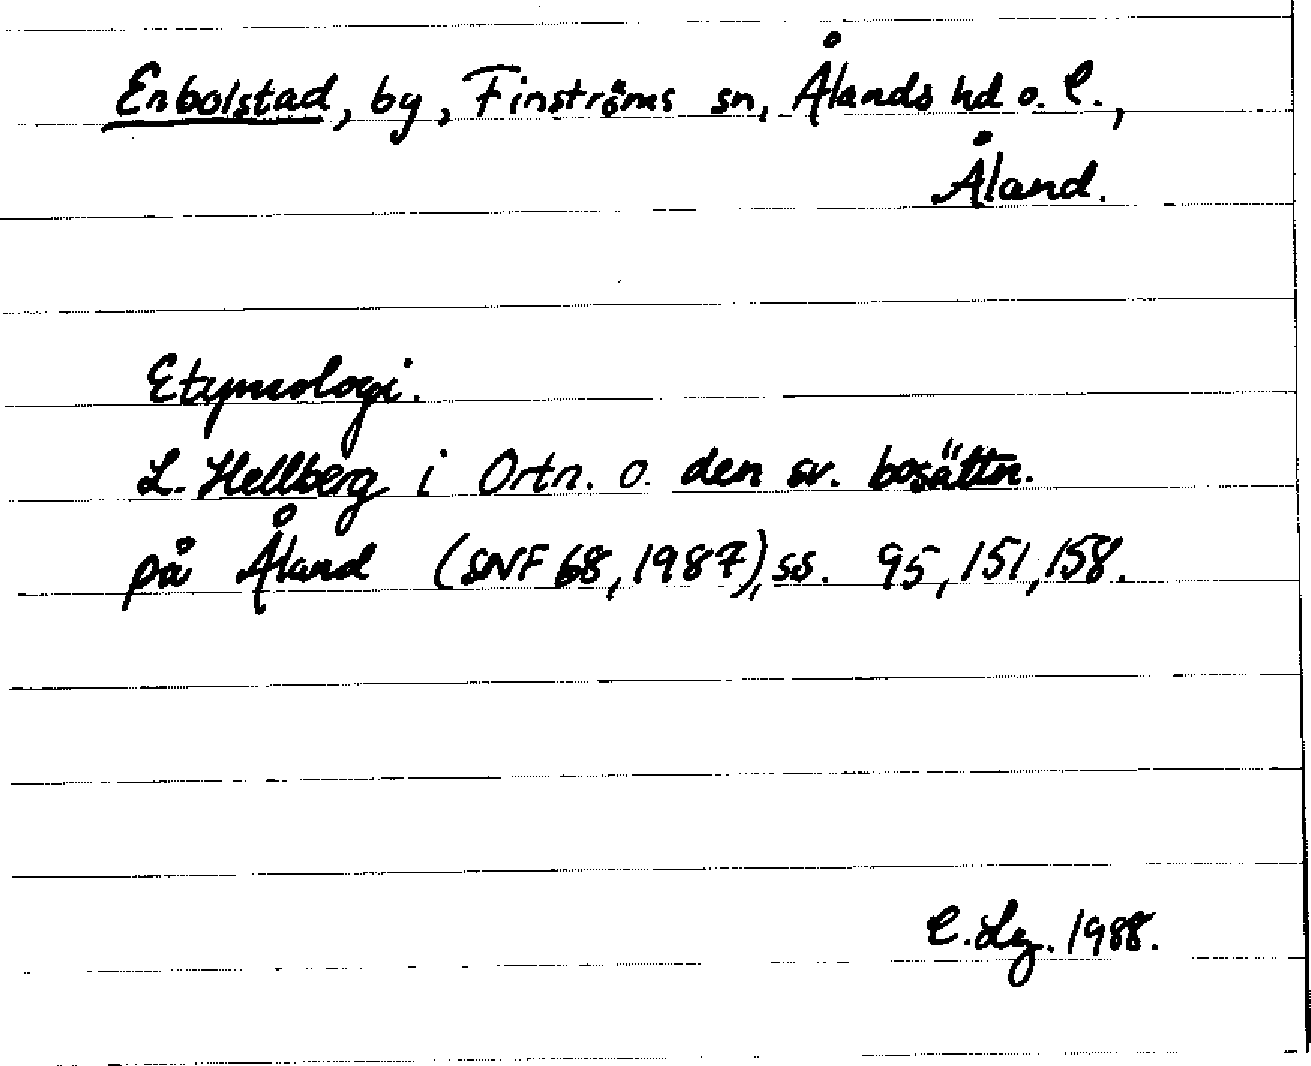 Enbolstad, by, Finströms sn, Ålands hd o. l.,
Åland.
Etymologi.
L. Hellberg i Ortn. o. den sv. bosättn.
på Åland (SNF 68, 1987), ss. 95, 151, 158.
C. Lg. 1988.